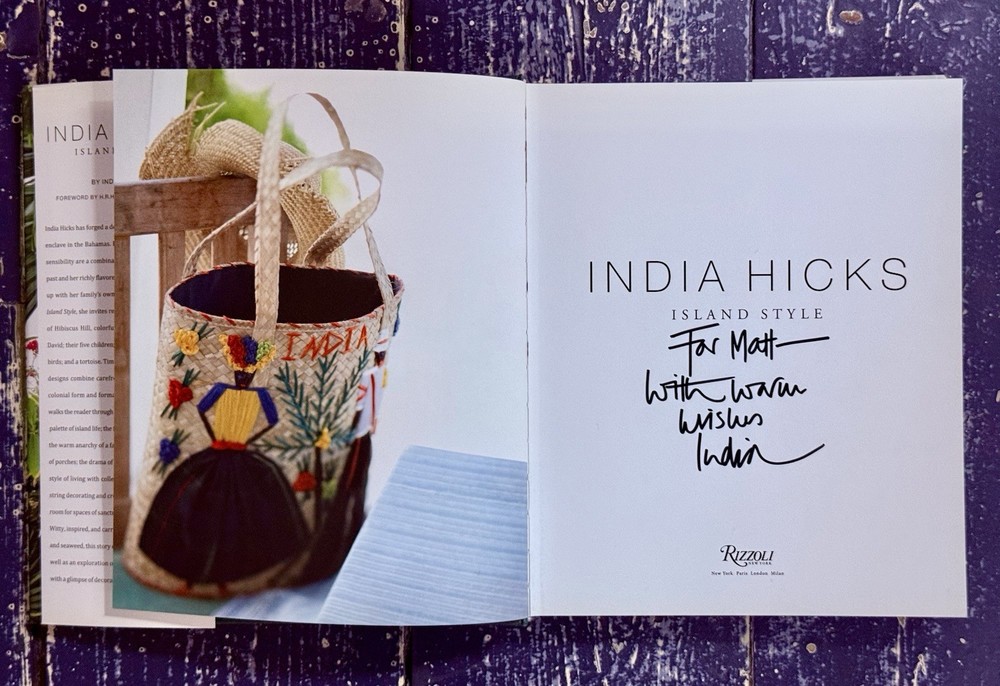 INDIA
ISLAN
BY IND
FOREWORD BY H.R.H
India Hicks has forged a d
enclave in the Bahamas.
sensibility are a combina
past and her richly flavor
up with her family's own
Island Style, she invites r
of Hibiscus Hill, colorfu
David; their five children
birds; and a tortoise. Tim
designs combine carefr
colonial form and forma
walks the reader through
palette of island life; the
the warm anarchy of a f
of porches; the drama of
style of living with colle
string decorating and cr
room for spaces of sanct
Witty, inspired, and carr
and seaweed, this story
well as an exploration o
with a glimpse of decora
INDIA
INDIA HICKS
ISLAND STYLE
For Matt
With warm
wishes
India
RIZZOLI
NEW YORK
New York Paris London Milan